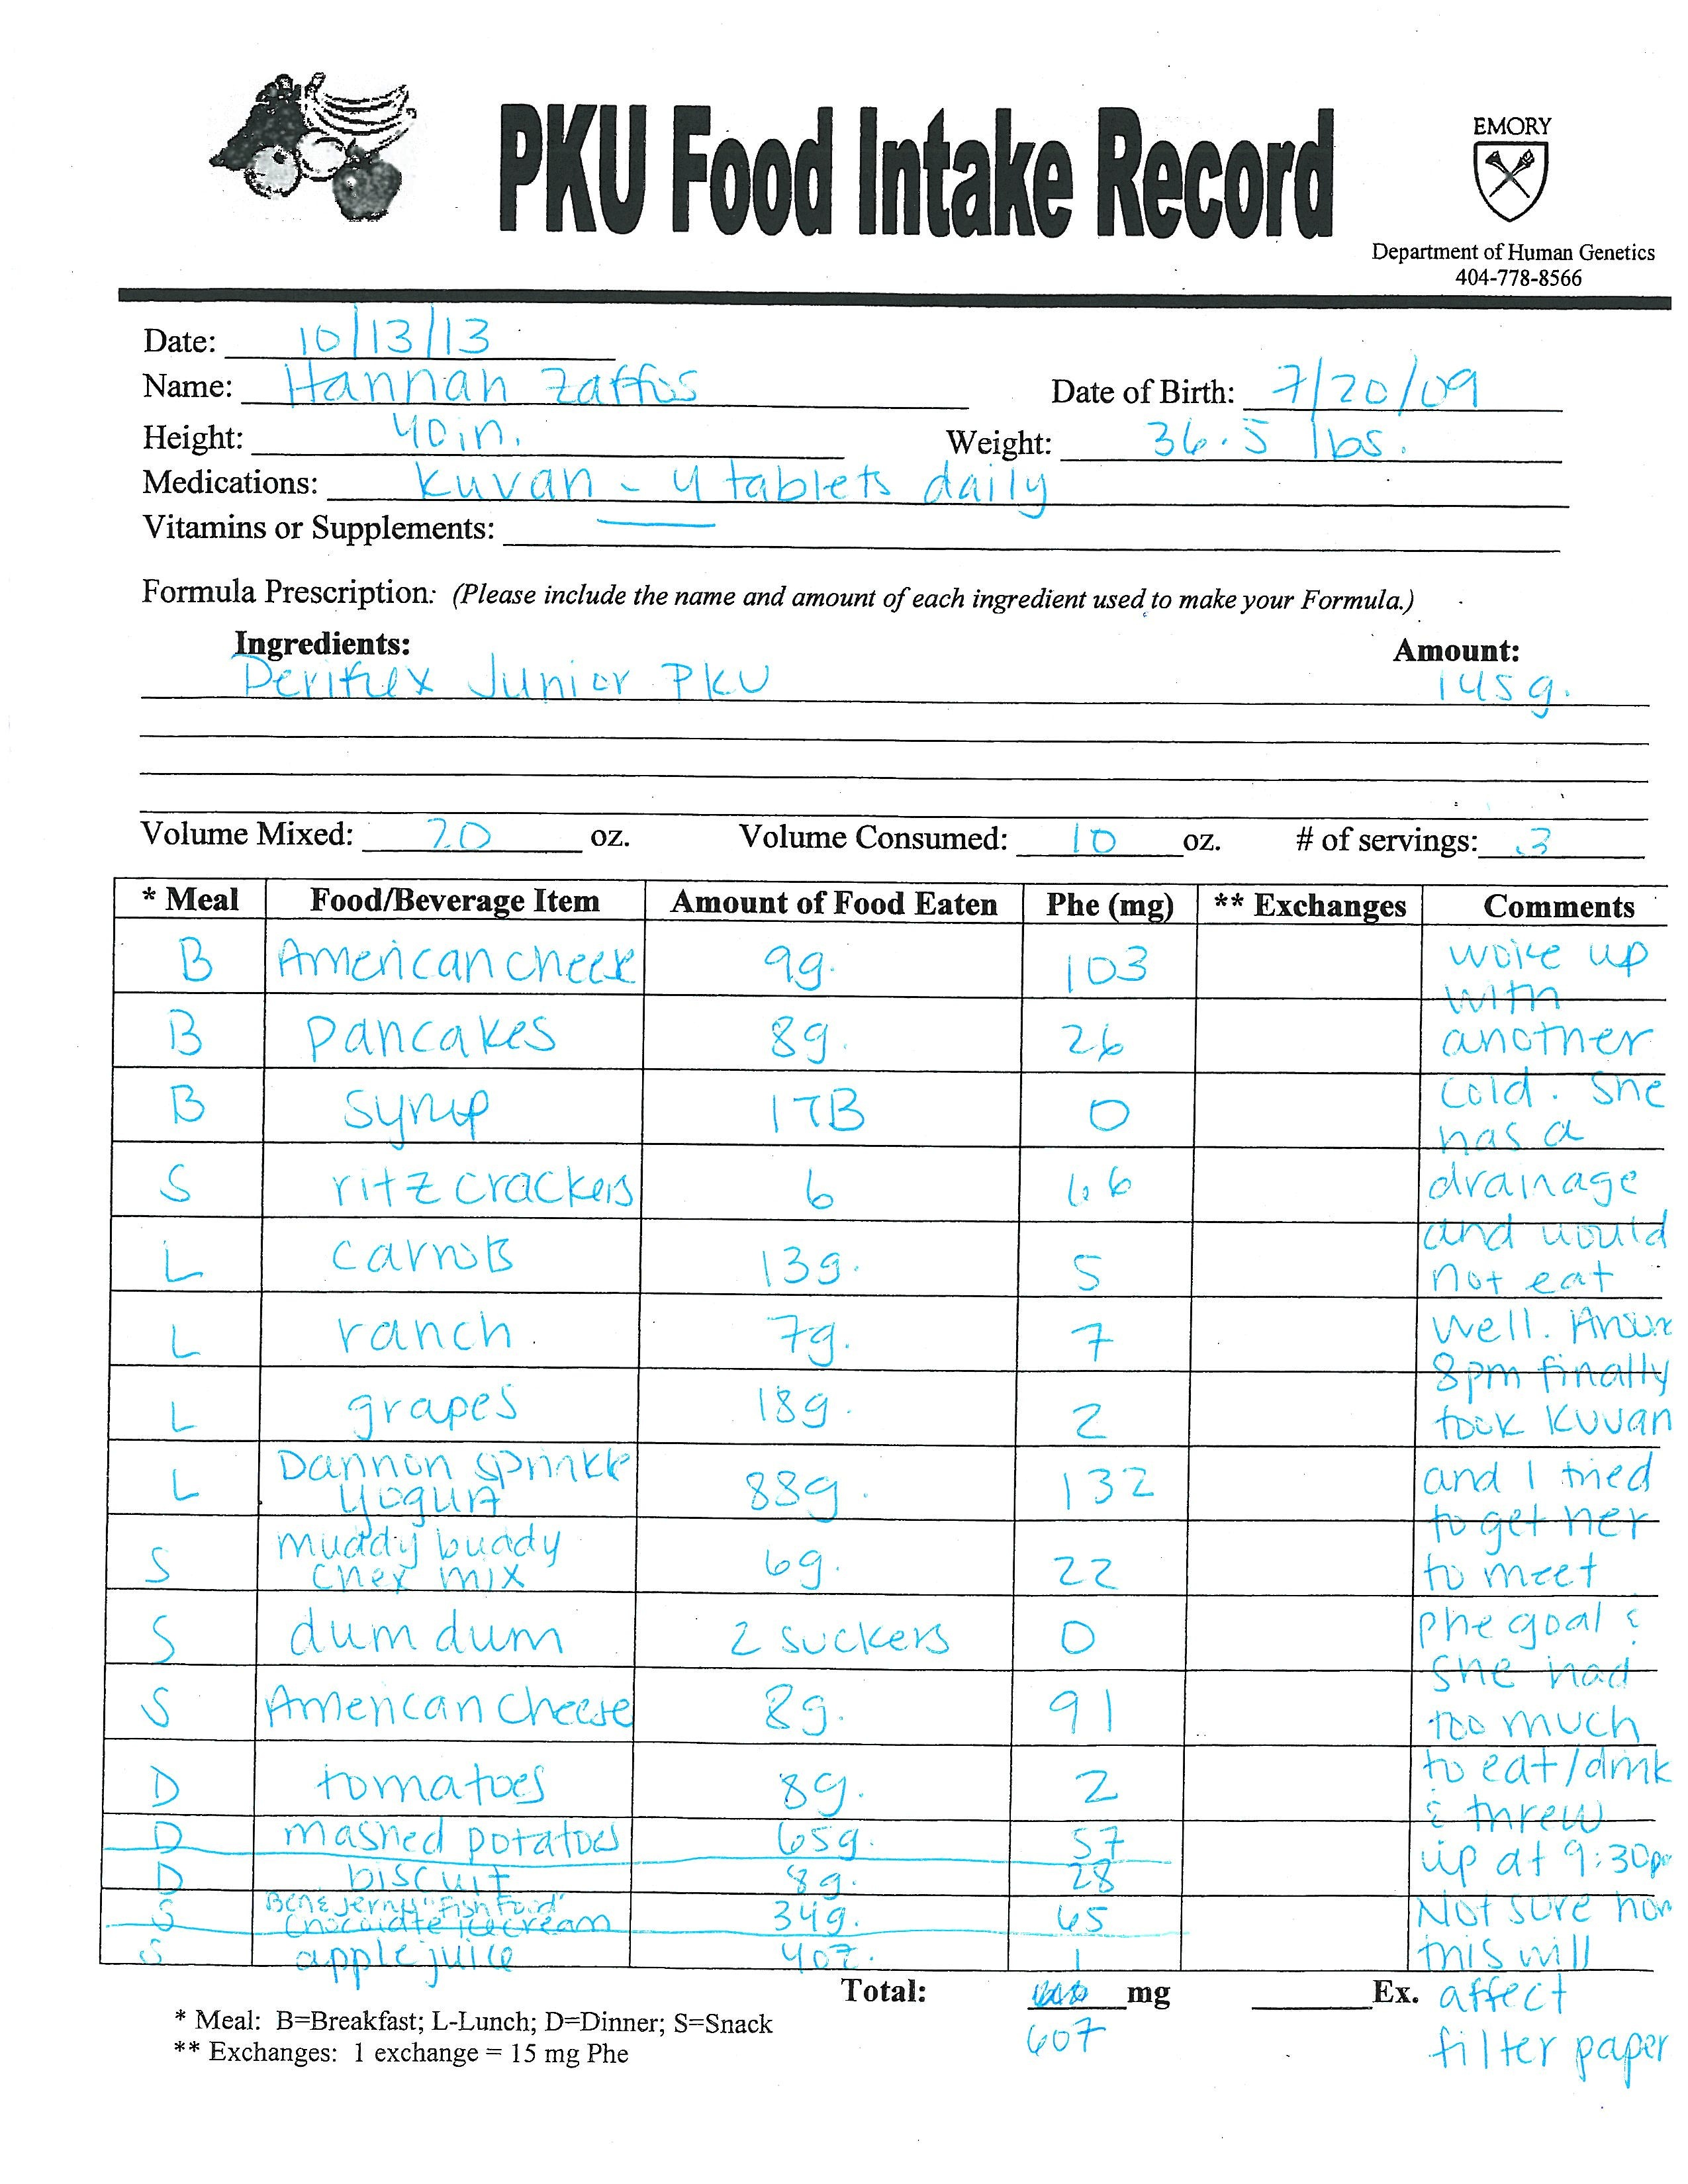 PKU Food Intake Record
EMORY
Department of Human Genetics
404-778-8566
Date: 10/13/13
Name: Hannah Zaffos Date of Birth: 7/20/09
Height: 40in. Weight: 36.5 lbs.
Medications: Kuvan - 4 tablets daily
Vitamins or Supplements: —
Formula Prescription: (Please include the name and amount of each ingredient used to make your Formula.)
Ingredients: Amount:
Periflex Junior PKU 145g.
Volume Mixed: 20 oz. Volume Consumed: 10 oz. # of servings: 3
* Meal Food/Beverage Item Amount of Food Eaten Phe (mg) ** Exchanges Comments
B American cheese 9g. 103 woke up
with
B pancakes 8g. 26 another
B syrup 1TB 0 cold. She
has a
S ritz crackers 6 66 drainage
L carrots 13g. 5 and would
not eat
L ranch 7g. 7 well.
8pm finally
L grapes 18g. 2 took Kuvan
L Dannon sprinkle and I tried
yogurt 88g. 132 to get her
S muddy buddy
chex mix 6g. 22 to meet
S dum dum 2 suckers 0 phe goal &
she had
S American Cheese 8g. 91 too much
D tomatoes 8g. 2 to eat/drink
& threw
D mashed potatoes 65g. 57 up at 9:30pm
D biscuit 8g. 28
S Ben & Jerry's "Fish Food"
Chocolate ice cream 34g. 65 Not sure how
S apple juice 4oz. 1 this will
Total: mg Ex. affect
607 filter paper
* Meal: B=Breakfast; L-Lunch; D=Dinner; S=Snack
** Exchanges: 1 exchange = 15 mg Phe